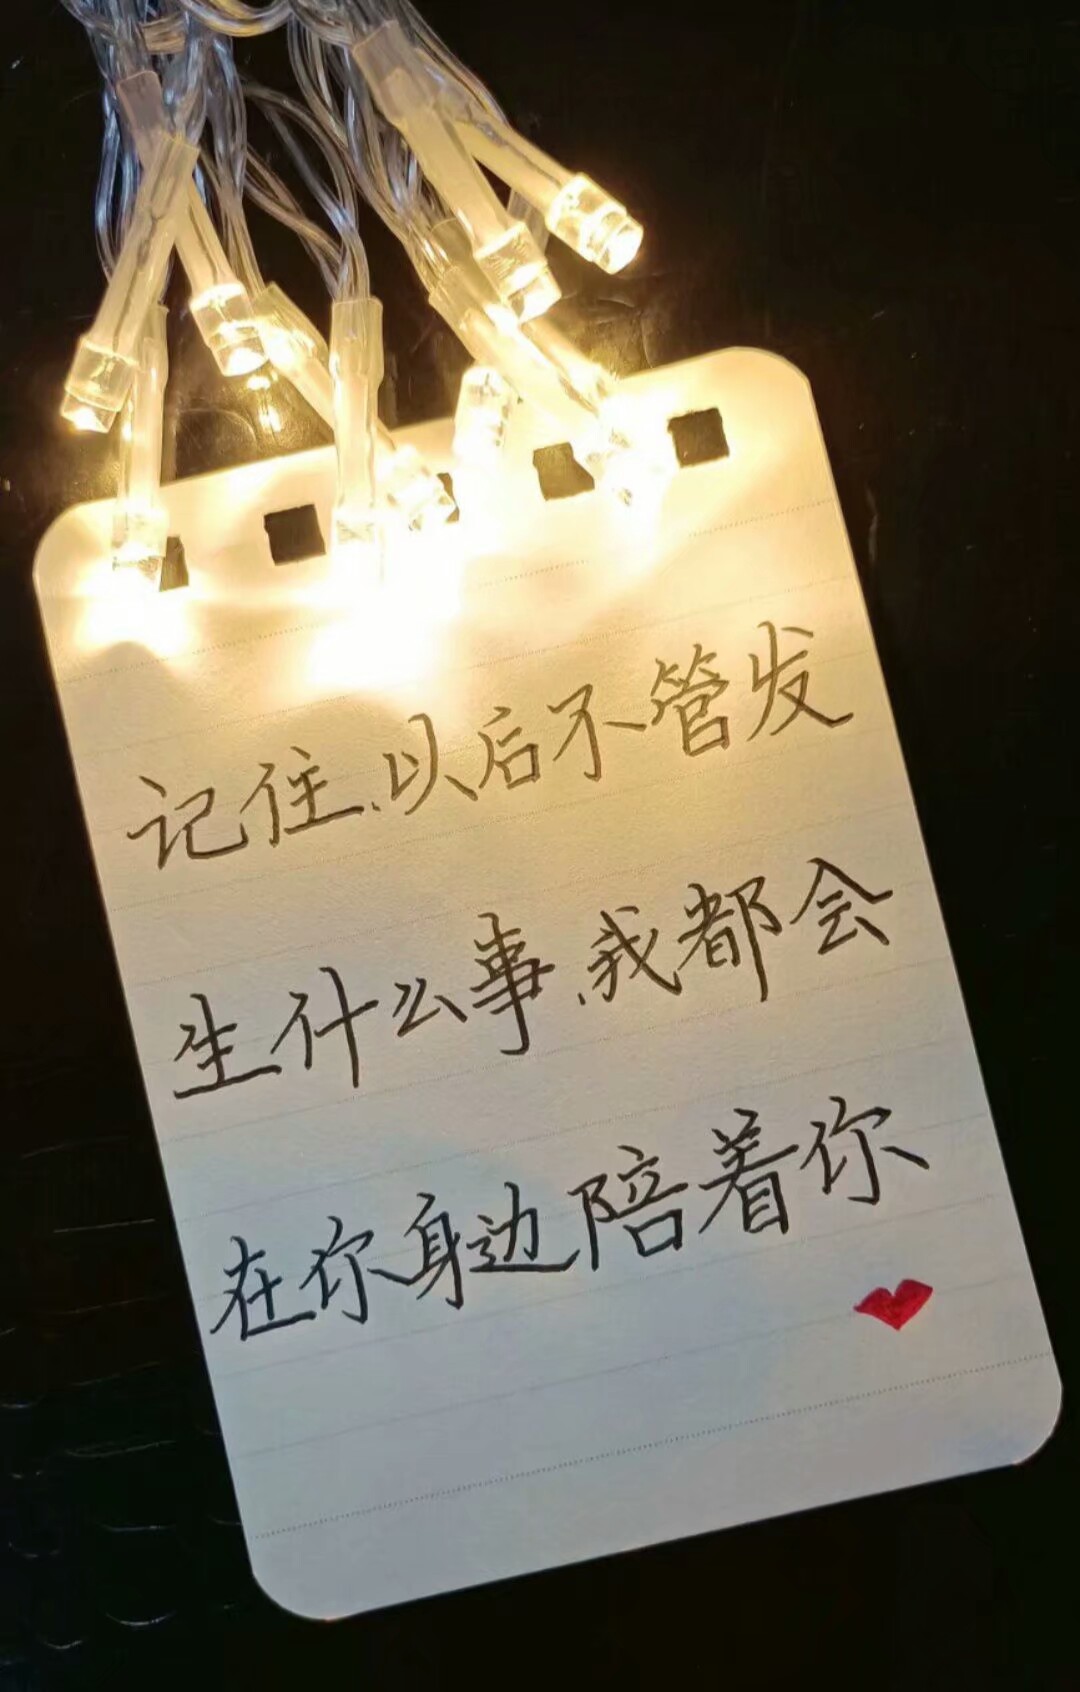 记住.以后不管发
生什么事.我都会
在你身边陪着你